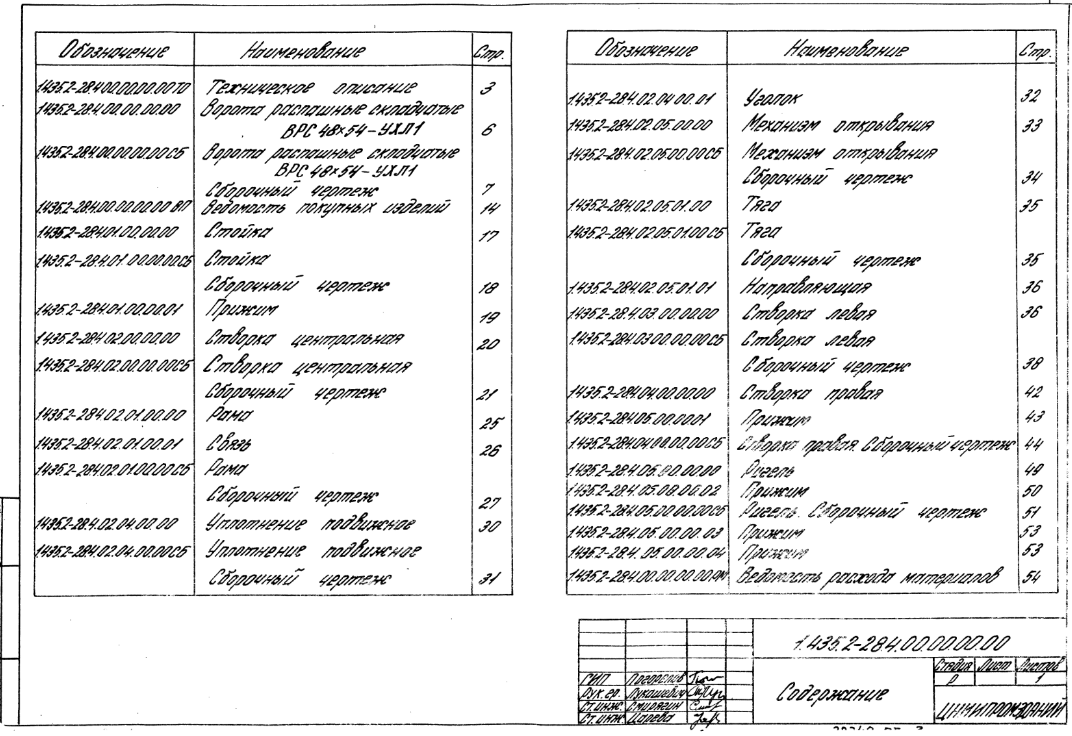 Обозначение Наименование Стр.
1.435.2-28.4.00.00.00.00ТО Техническое описание 3
1.435.2-28.4.00.00.00.00 Ворота распашные складчатые
ВРС 48×54-УХЛ1 6
1.435.2-28.4.00.00.00.00СБ Ворота распашные складчатые
ВРС 48×54-УХЛ1
Сборочный чертеж 7
1.435.2-28.4.00.00.00.00 ВП Ведомость покупных изделий 14
1.435.2-28.4.01.00.00.00 Стойка 17
1.435.2-28.4.01.00.00.00СБ Стойка
Сборочный чертеж 18
1.435.2-28.4.01.00.00.01 Прижим 19
1.435.2-28.4.02.00.00.00 Створка центральная 20
1.435.2-28.4.02.00.00.00СБ Створка центральная
Сборочный чертеж 21
1.435.2-28.4.02.01.00.00 Рама 25
1.435.2-28.4.02.01.00.01 Связь 26
1.435.2-28.4.02.01.00.00СБ Рама
Сборочный чертеж 27
1.435.2-28.4.02.04.00.00 Уплотнение подвижное 30
1.435.2-28.4.02.04.00.00СБ Уплотнение подвижное
Сборочный чертеж 31
Обозначение Наименование Стр.
1.435.2-28.4.02.04.00.01 Уголок 32
1.435.2-28.4.02.05.00.00 Механизм открывания 33
1.435.2-28.4.02.05.00.00СБ Механизм открывания
Сборочный чертеж 34
1.435.2-28.4.02.05.01.00 Тяга 35
1.435.2-28.4.02.05.01.00СБ Тяга
Сборочный чертеж 35
1.435.2-28.4.02.05.01.01 Направляющая 36
1.435.2-28.4.03.00.00.00 Створка левая 36
1.435.2-28.4.03.00.00.00СБ Створка левая
Сборочный чертеж 38
1.435.2-28.4.04.00.00.00 Створка правая 42
1.435.2-28.4.05.00.00.01 Прижим 43
1.435.2-28.4.04.00.00.00СБ Створка правая. Сборочный чертеж 44
1.435.2-28.4.05.00.00.00 Ригель 49
1.435.2-28.4.05.00.00.02 Прижим 50
1.435.2-28.4.05.00.00.00СБ Ригель. Сборочный чертеж 51
1.435.2-28.4.05.00.00.03 Прижим 53
1.435.2-28.4.05.00.00.04 Прижим 53
1.435.2-28.4.00.00.00.00ВМ Ведомость расхода материалов 54
1.435.2-28.4.00.00.00.00
Стадия Лист Листов
Р 1
ГИП
Рук.гр. Лукашевич
Ст.инж. Смирягин
Ст.инж. Царева
Содержание
ЦНИИПРОМЗДАНИЙ